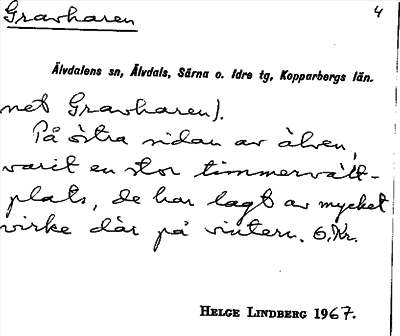 Gravharen
4
Älvdalens sn, Älvdals, Särna o. Idre tg, Kopparbergs län.
net Gravharen).
På östra sidan av älven,
varit en stor timmervält-
plats, de har lagt av mycket
virke där på vintern. G.Kr.
HELGE LINDBERG 1967.